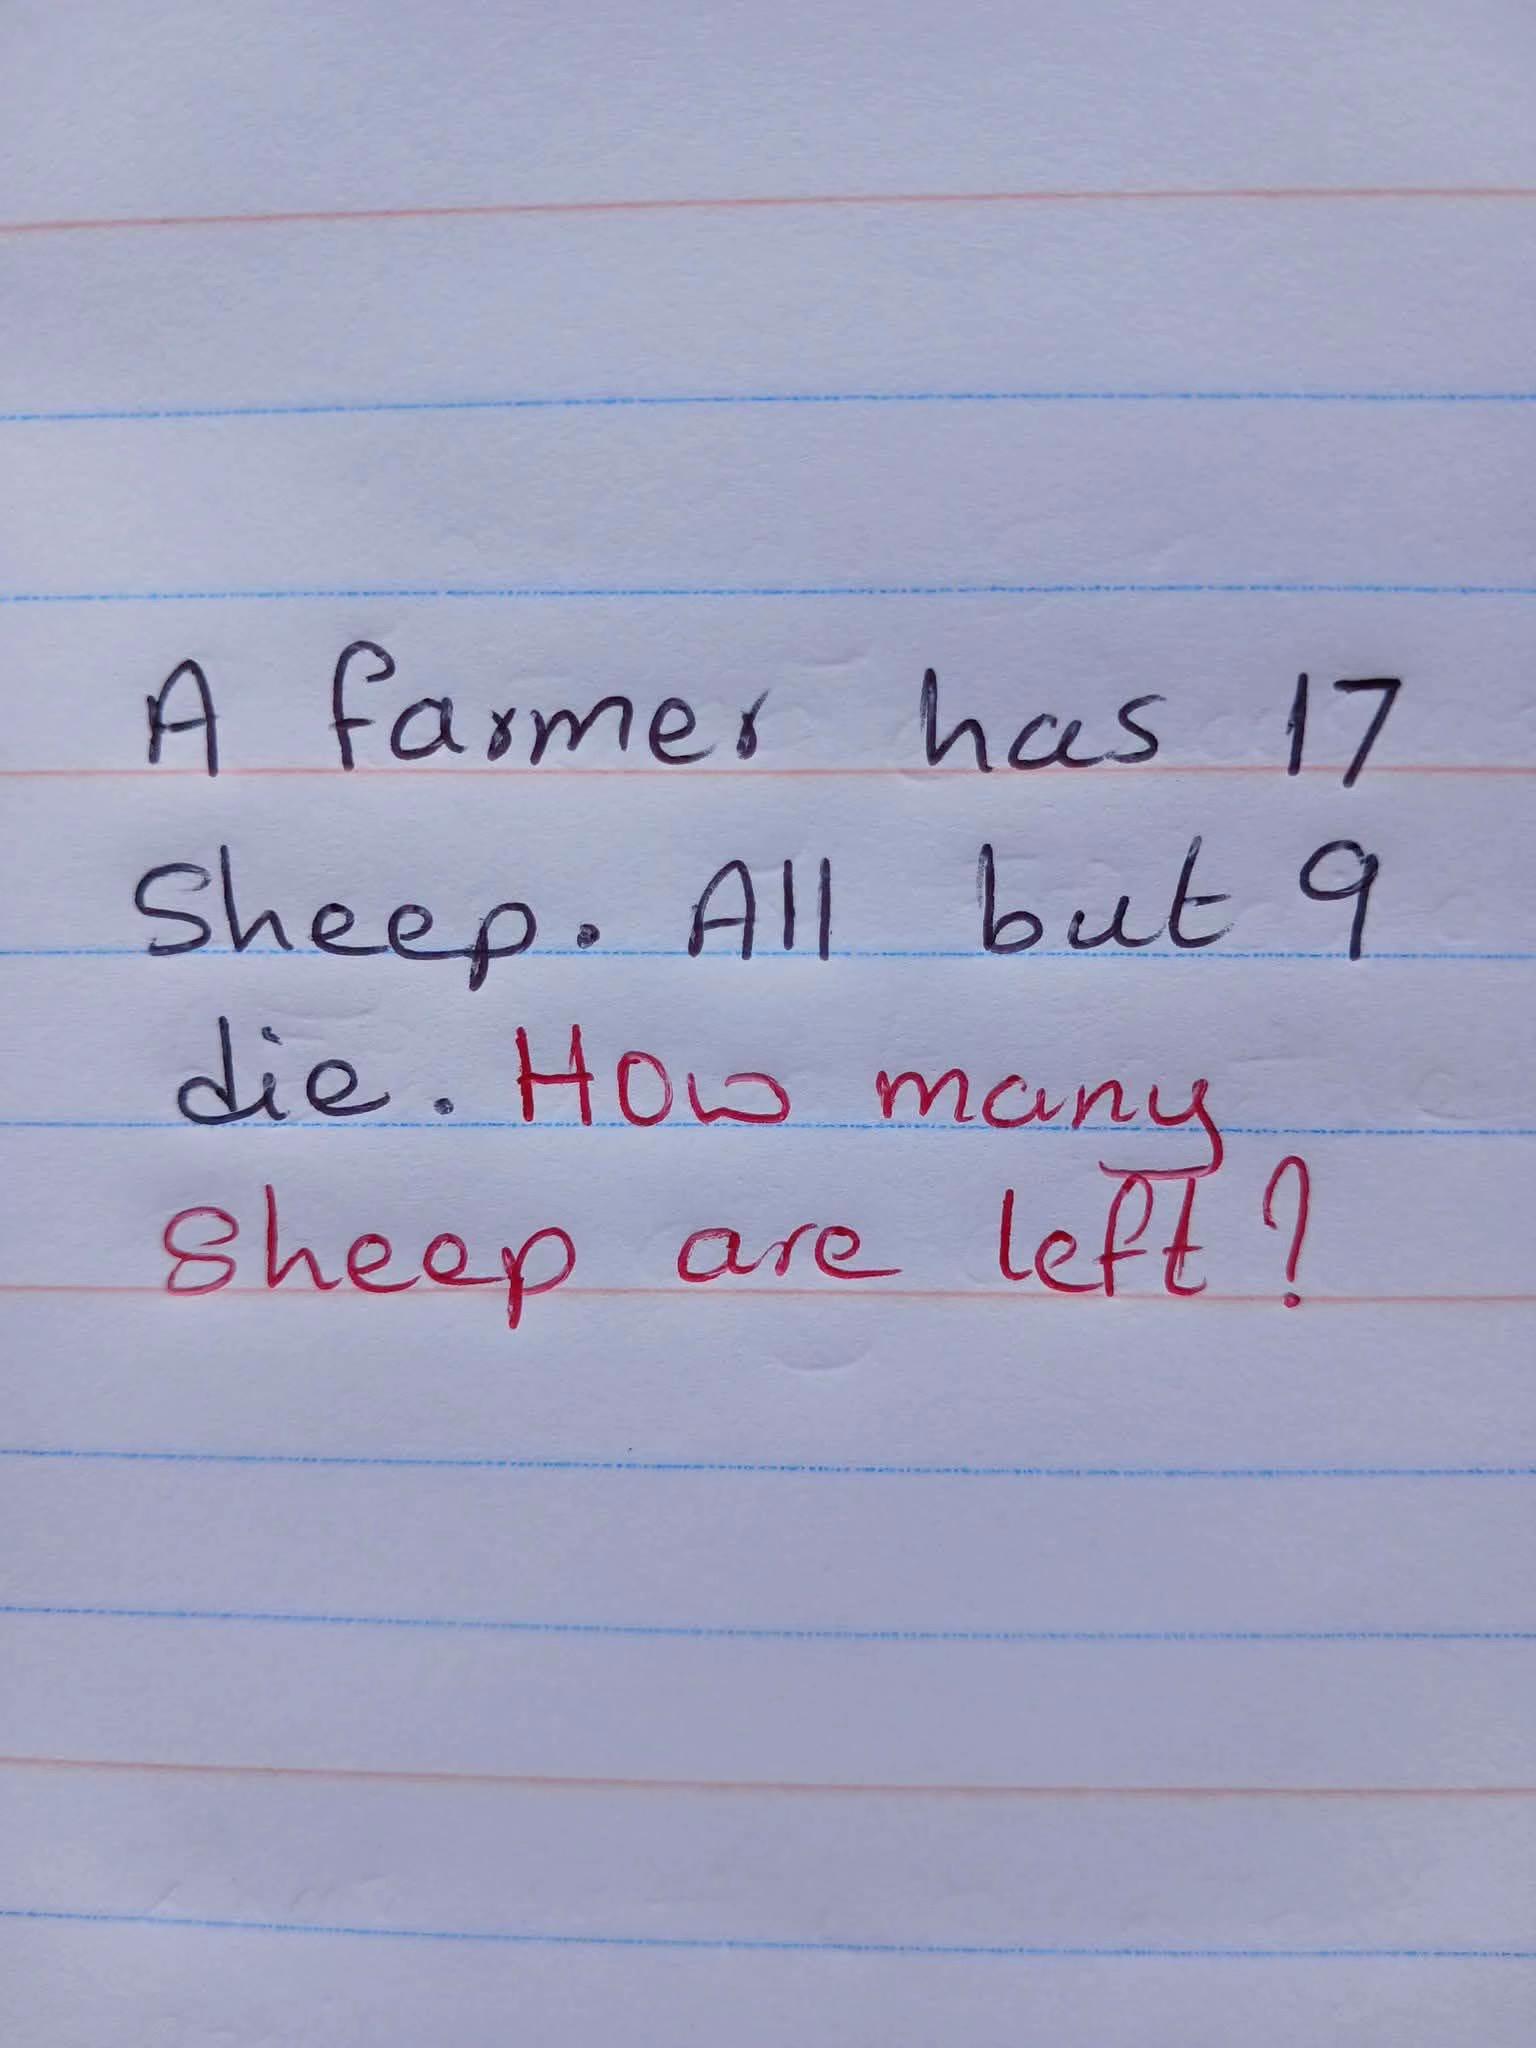 A farmer has 17
Sheep. All but 9
die. How many
Sheep are left?